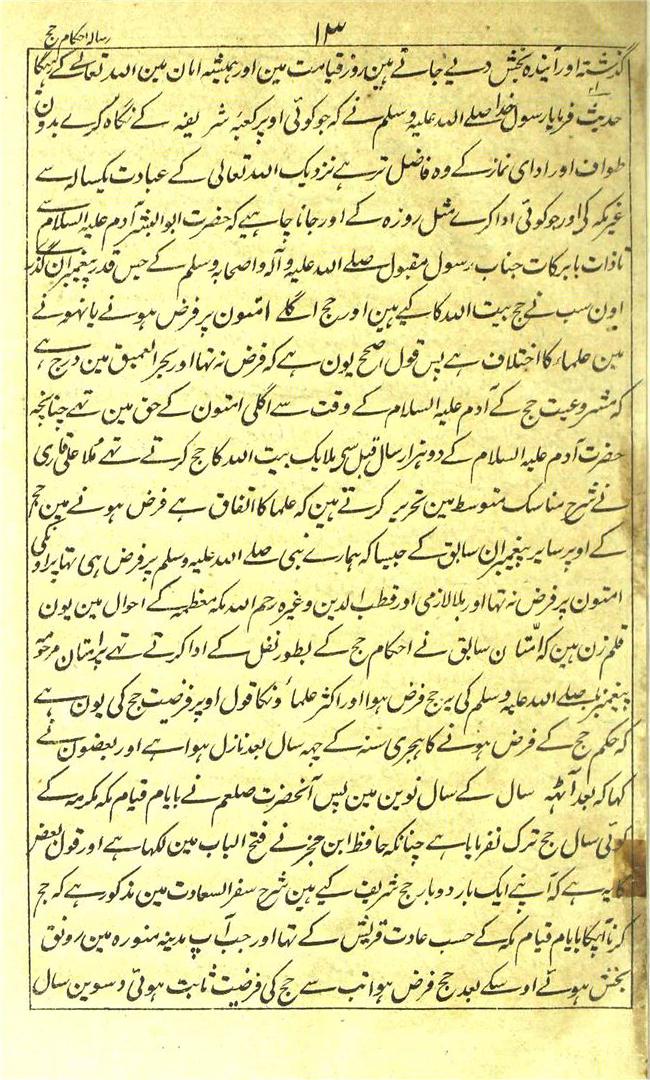 ۱۳
رسالہ احکام حج
گذشتہ اور آیندہ بخش دیے جاتے ہین روز قیامت مین اور ہمیشہ امان مین اللہ تعالے کے رہیگا
حدیث فرمایا رسول خدا صلے اللہ علیہ وسلم نے کہ جو کوئی اوپر کعبۂ شریفہ کے نگاہ کرے بدون
طواف اور ادای نماز کے وہ فاضل تر ہے نزدیک اللہ تعالی کے عبادت یکسالہ سے
غیر مکہ کی اور جو کوئی ادا کرے مثل روزہ کے اور جانا چاہیے کہ حضرت ابو البشر آدم علیہ السلام سے
تاذات بابرکات جناب رسول مقبول صلے اللہ علیہ وآلہ واصحابہ وسلم کے جس قدر پیغمبران گذرے
اون سب نے حج بیت اللہ کا کیے ہین اور حج اگلے امتون پر فرض ہونے یا نہونے
مین علماء کا اختلاف ہے پس قول اصح یون ہے کہ فرض نہ تہا اور بحر العمیق مین درج ہے
کہ مشروعیت حج کے آدم علیہ السلام کے وقت سے اگلی امتون کے حق مین تہے چنانچہ
حضرت آدم علیہ السلام کے دو ہزار سال قبل سی ملایک بیت اللہ کا حج کرتے تہے ملا علی قاری
نے شرح مناسک متوسط مین تحریر کرتے ہین کہ علما کا اتفاق ہے فرض ہونے مین حج
کے اوپر سایر پیغمبران سابق کے جیسا کہ ہمارے نبی صلے اللہ علیہ وسلم پر فرض ہی تہا پر اونکی
امتون پر فرض نہ تہا اور بلا لازمی اور قطب الدین وغیرہ رحم اللہ مکہ معظمہ کے احوال مین یون
قلم زن ہین کہ امتان سابق نے احکام حج کے بطور نفل کے ادا کرتے تہے پر امتان مرحومہ
پیغمبر صلے اللہ علیہ وسلم کی پر حج فرض ہوا اور اکثر علماؤنکا قول اوپر فرضیت حج کی یون ہے
کہ حکم حج کے فرض ہونے کا ہجری سنہ کے چہہ سال بعد نازل ہوا ہے اور بعضون نے
کہا کہ بعد آٹہہ سال کے سال نوین مین پس آنحضرت صلعم نے بایام قیام مکہ مکرمہ کے
کوئی سال حج ترک نفرمایا ہے چنانکہ حافظ ابن حجر نے فتح الباب مین لکہا ہے اور قول بعض
کا یہ ہے کہ آپنے ایک بار دو بار حج شریف کیے ہین شرح سفر السعادت مین مذکور ہے کہ حج
کرنا آپکا بایام قیام مکہ کے حسب عادت قریش کے تہا اور جب آپ مدینہ منورہ مین رونق
بخش ہوئے اوسکے بعد حج فرض ہوا تب سے حج کی فرضیت ثابت ہوئی دسوین سال